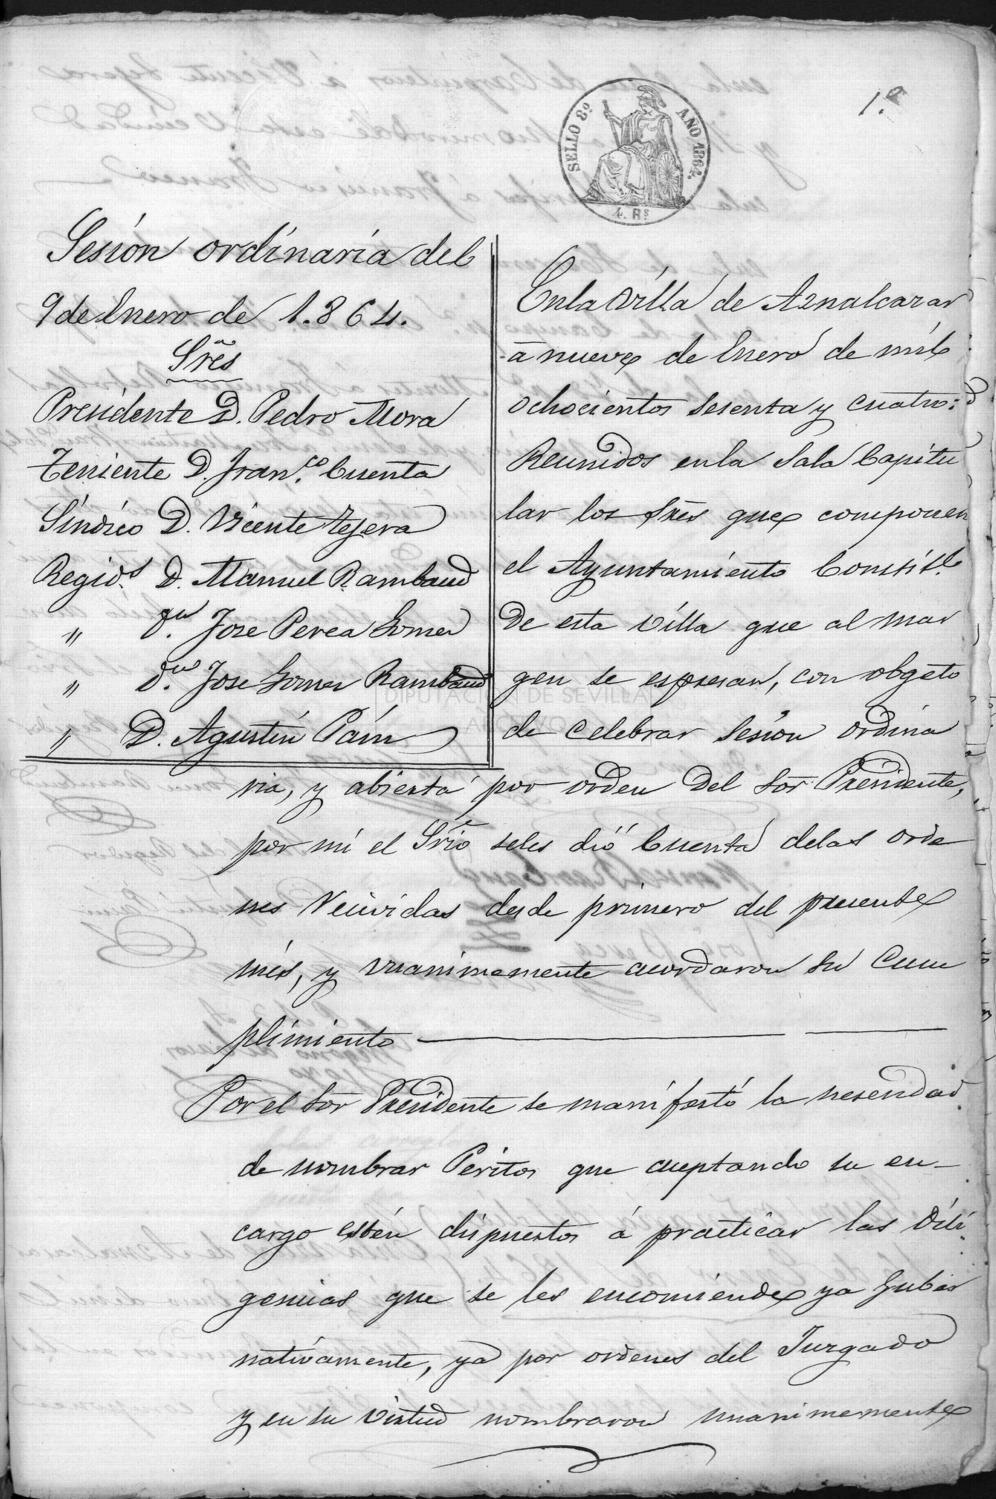 1.ª
SELLO 8º AÑO 1862.
4. Rs
Sesión ordinaria del
9 de Enero de 1.864.
Sres
Presidente D. Pedro Mora
Teniente D. Franco. Cuenta
Síndico D. Vicente Tejera
Regid.s D. Manuel Rambaud
" Jose Perea Gomez
" Jose Gomez Rambaud
" D. Agustín Paín
En la villa de Aznalcazar
á nueve de Enero de mil
ochocientos sesenta y cuatro:
Reunidos en la Sala Capitu
lar los Sres que componen
el Ayuntamiento Constitl.
de esta villa que al mar
gen se espresan, con obgeto
de celebrar sesion ordina
ria, y abierta por orden del Sor Presidente,
por mí el Srio seles dió Cuenta delas orde
nes recividas desde primero del presente
més, y unanimemente acordaron su Cum
plimiento
Por el Sor Presidente se manifestó la nesesidad
de nombrar Peritos que aceptando su en-
cargo estén dispuestos á practicar las dili
gencias que se les encomiende ya guber
nativamente, ya por ordenes del Jurgado
y en su virtud nombraron unanimemente
DIPUTACIÓN DE SEVILLA
ARCHIVO